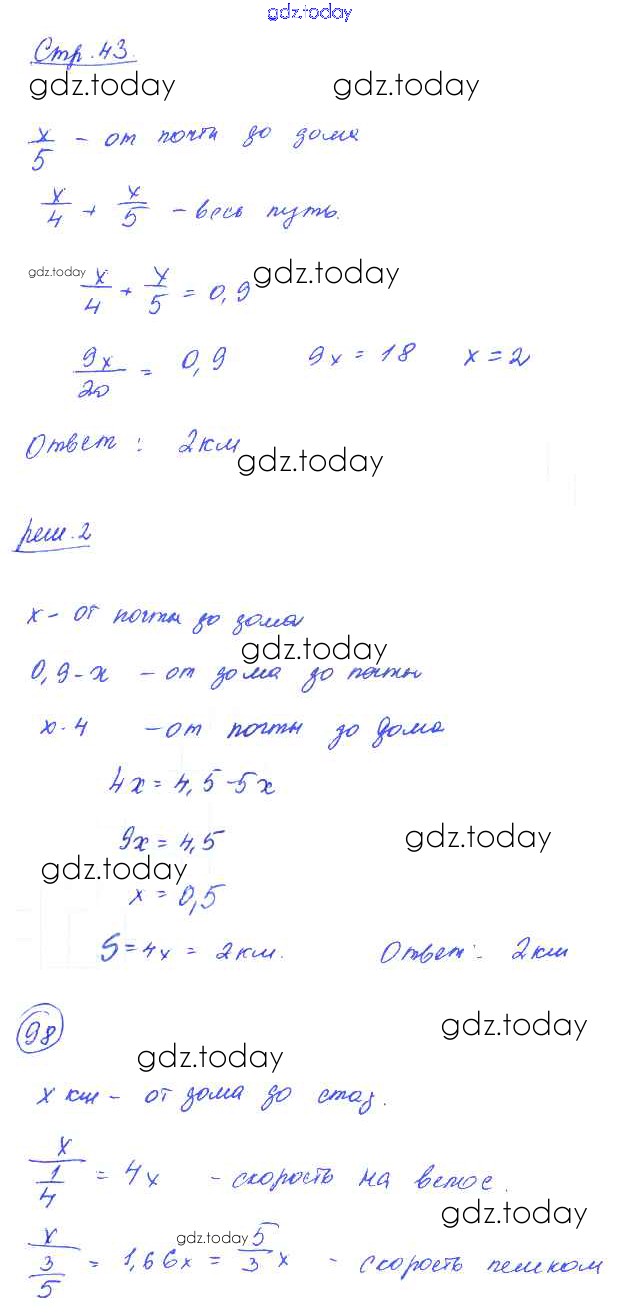 gdz.today
Стр. 43.
gdz.today gdz.today
x/5 - от почты до дома
x/4 + x/5 - весь путь.
gdz.today gdz.today
x/4 + x/5 = 0,9
9x/20 = 0,9 9x = 18 x = 2
Ответ: 2 км
gdz.today
реш. 2
x - от почты до дома
gdz.today
0,9 - x - от дома до почты
x · 4 - от почты до дома
4x = 4,5 - 5x
9x = 4,5
gdz.today
gdz.today
x = 0,5
S = 4x = 2 км. Ответ: 2 км
98
gdz.today
gdz.today
x км - от дома до стад.
x/(1/4) = 4x - скорость на велос.
gdz.today
gdz.today
x/(3/5) = 1,66x = 5/3 x - скорость пешком